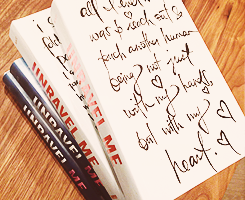 all I ever
was to reach out &
touch another human
being not just
with my hands
but with my
heart.
UNRAVEL ME
UNRAVEL ME
UNRAVEL ME
UNRAVEL ME